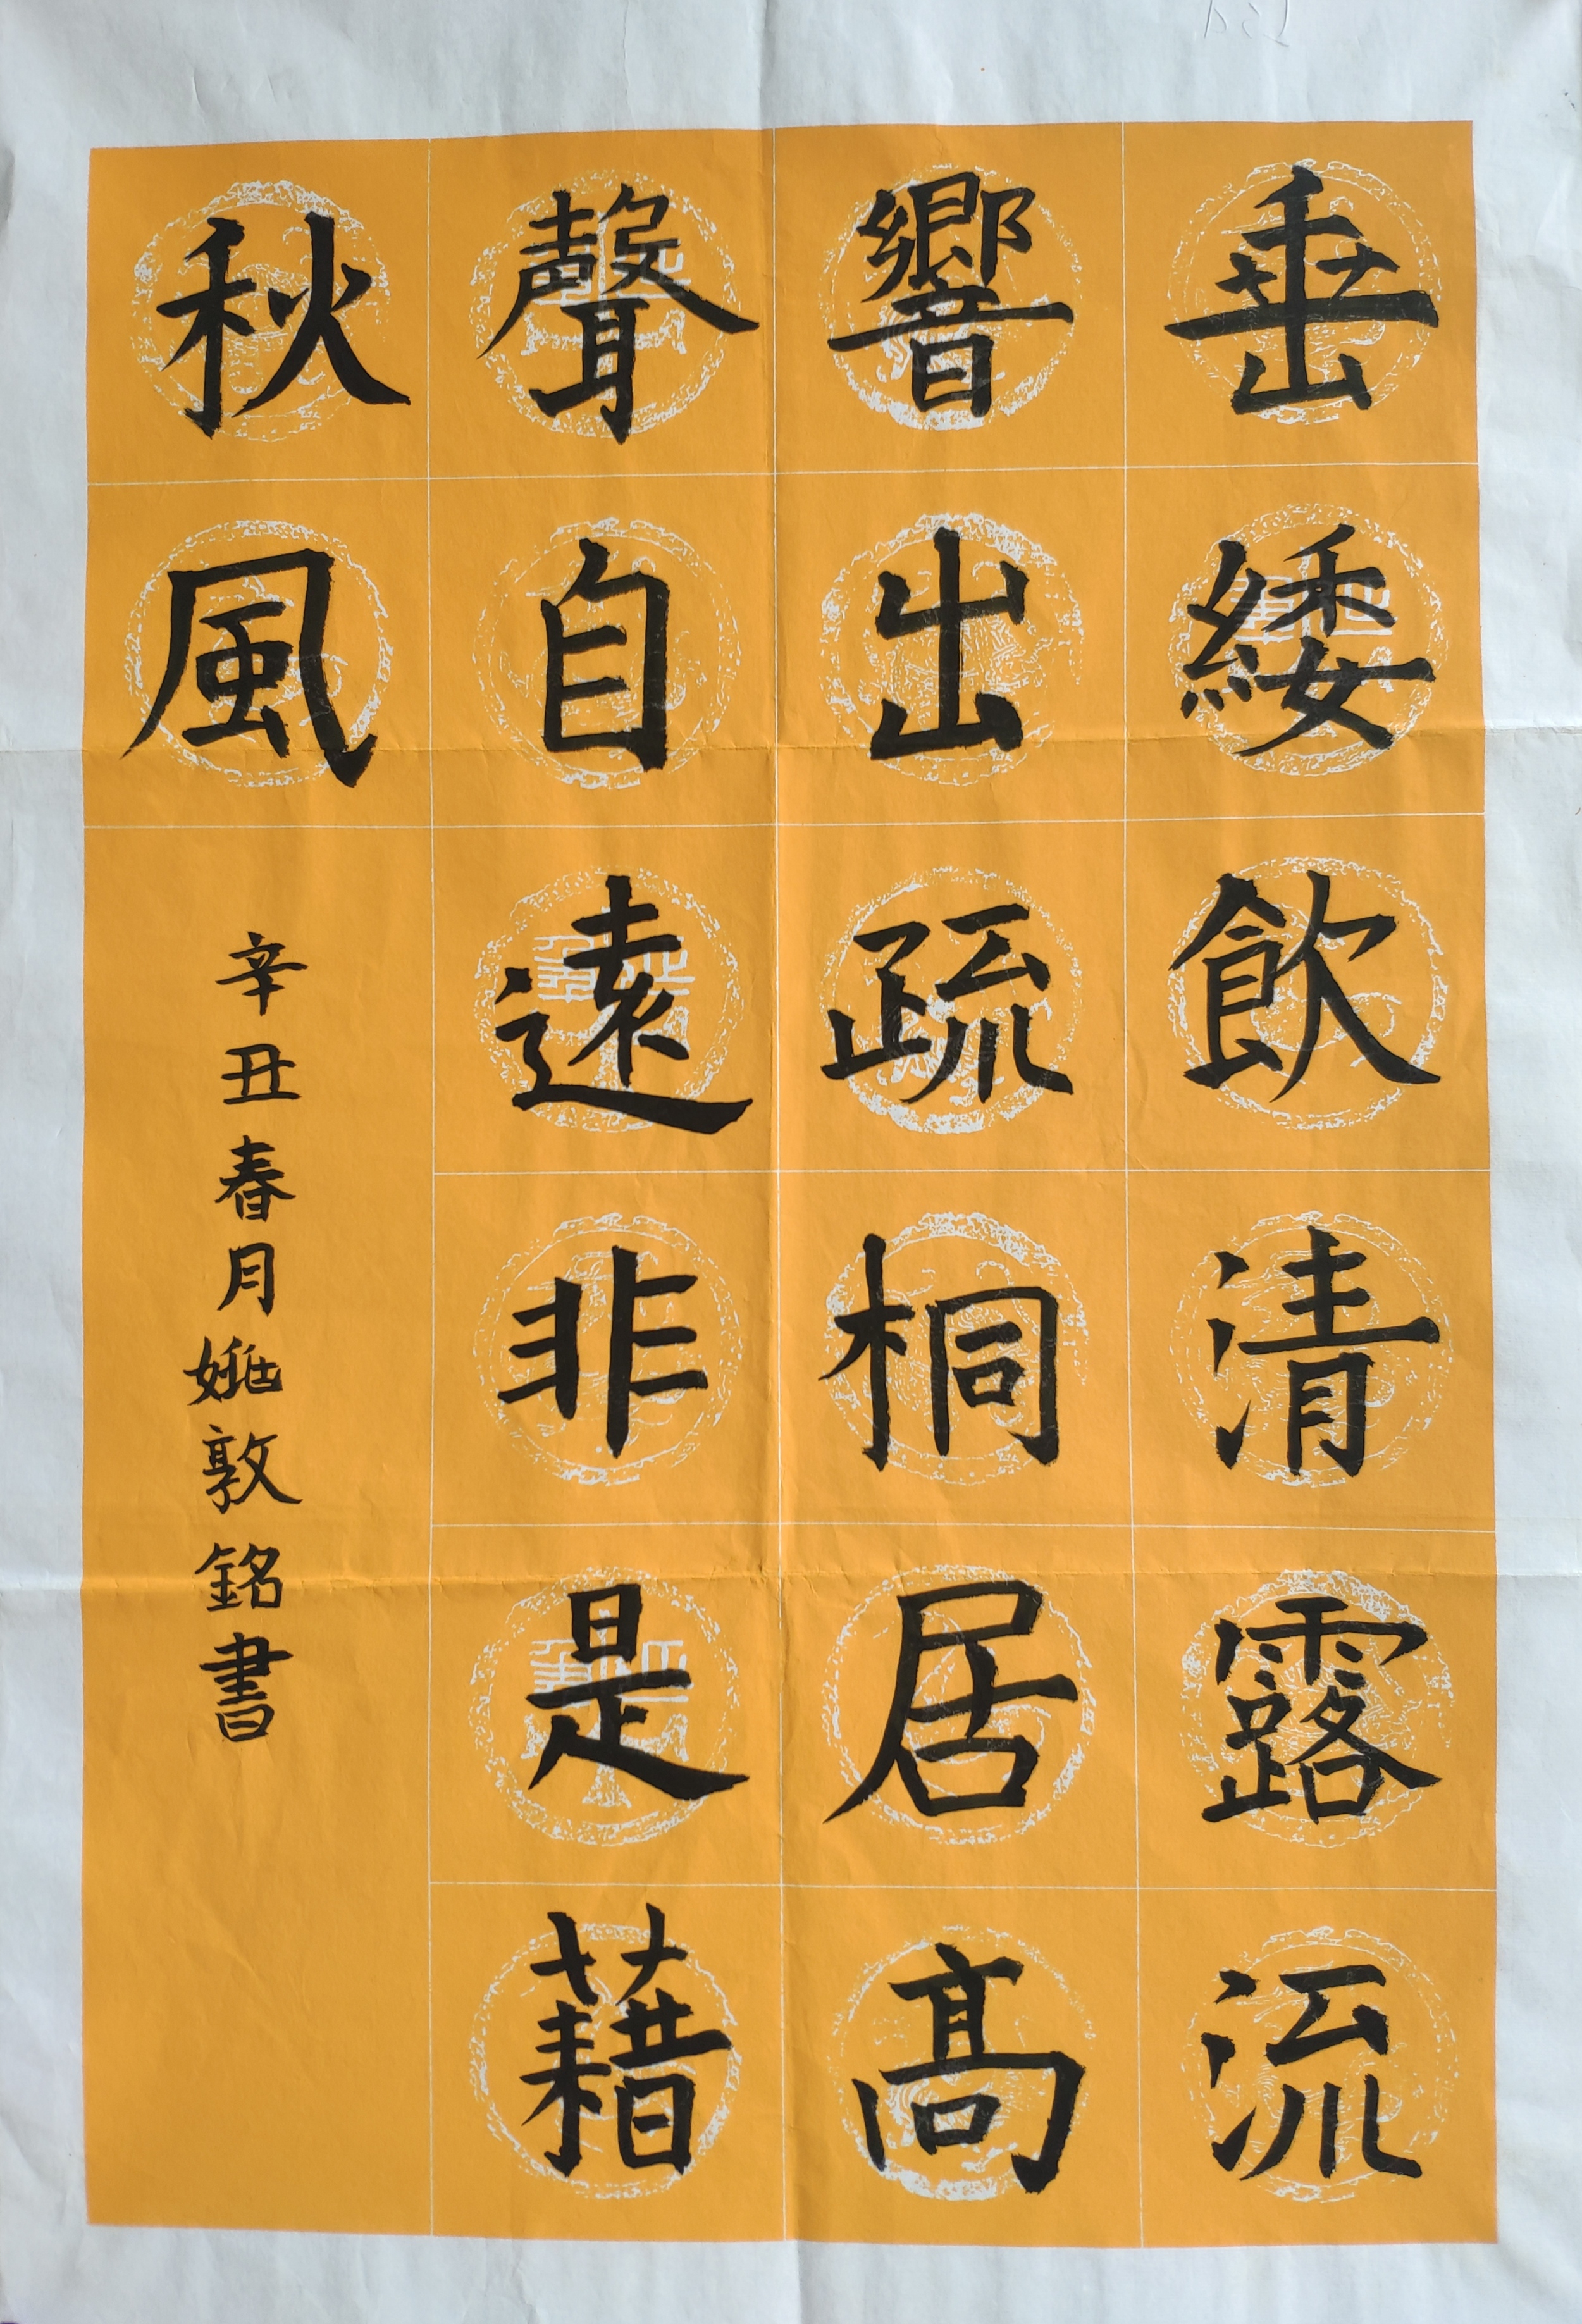 垂緌飲清露流
響出疏桐居高
聲自遠非是藉
秋風
辛丑春月敦銘書